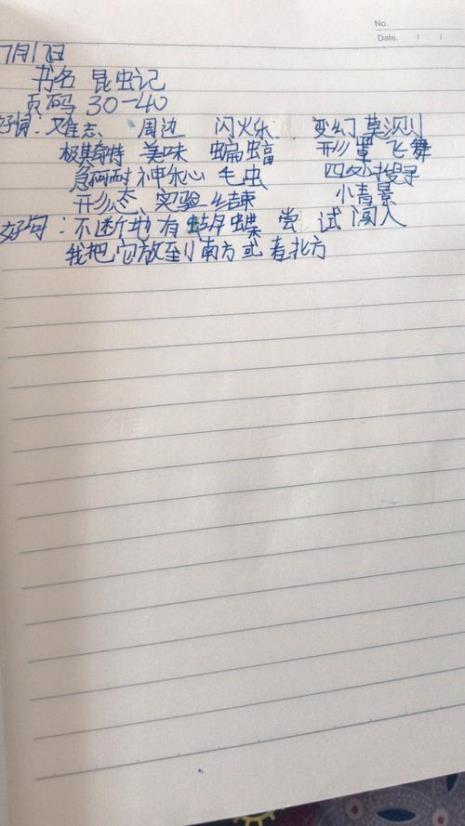 No.
Date.
7月17日
书名 昆虫记
页码 30-40
好词: 难忘 周边 闪烁 变幻莫测
极其奇特 美味 蝙蝠 形单 飞舞
急何耐 神 心 毛虫 四处搜寻
形态 实验 结束 小青景
好句:不断地有蝴蝶 尝试闯入
我把它放到南方或者北方